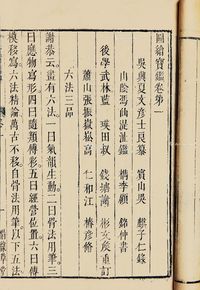 圖繪寶鑑卷第一
吳興夏文彥士良纂 賓山吳 麒子仁錄
山陰馮仙湜沚鑑 李顧 仲書
後學武林藍 瑛田叔 錢塘謝 彬文矦重訂
蕭山張振嶽 高 仁和江 椿彥
六法三品
謝恭云畫有六法一曰氣韻生動二曰骨法用筆三
曰應物寫形四曰隨類傅彩五曰經營位置六曰傳
模移寫六法精論萬古不移自骨法用筆以下五法
草堂